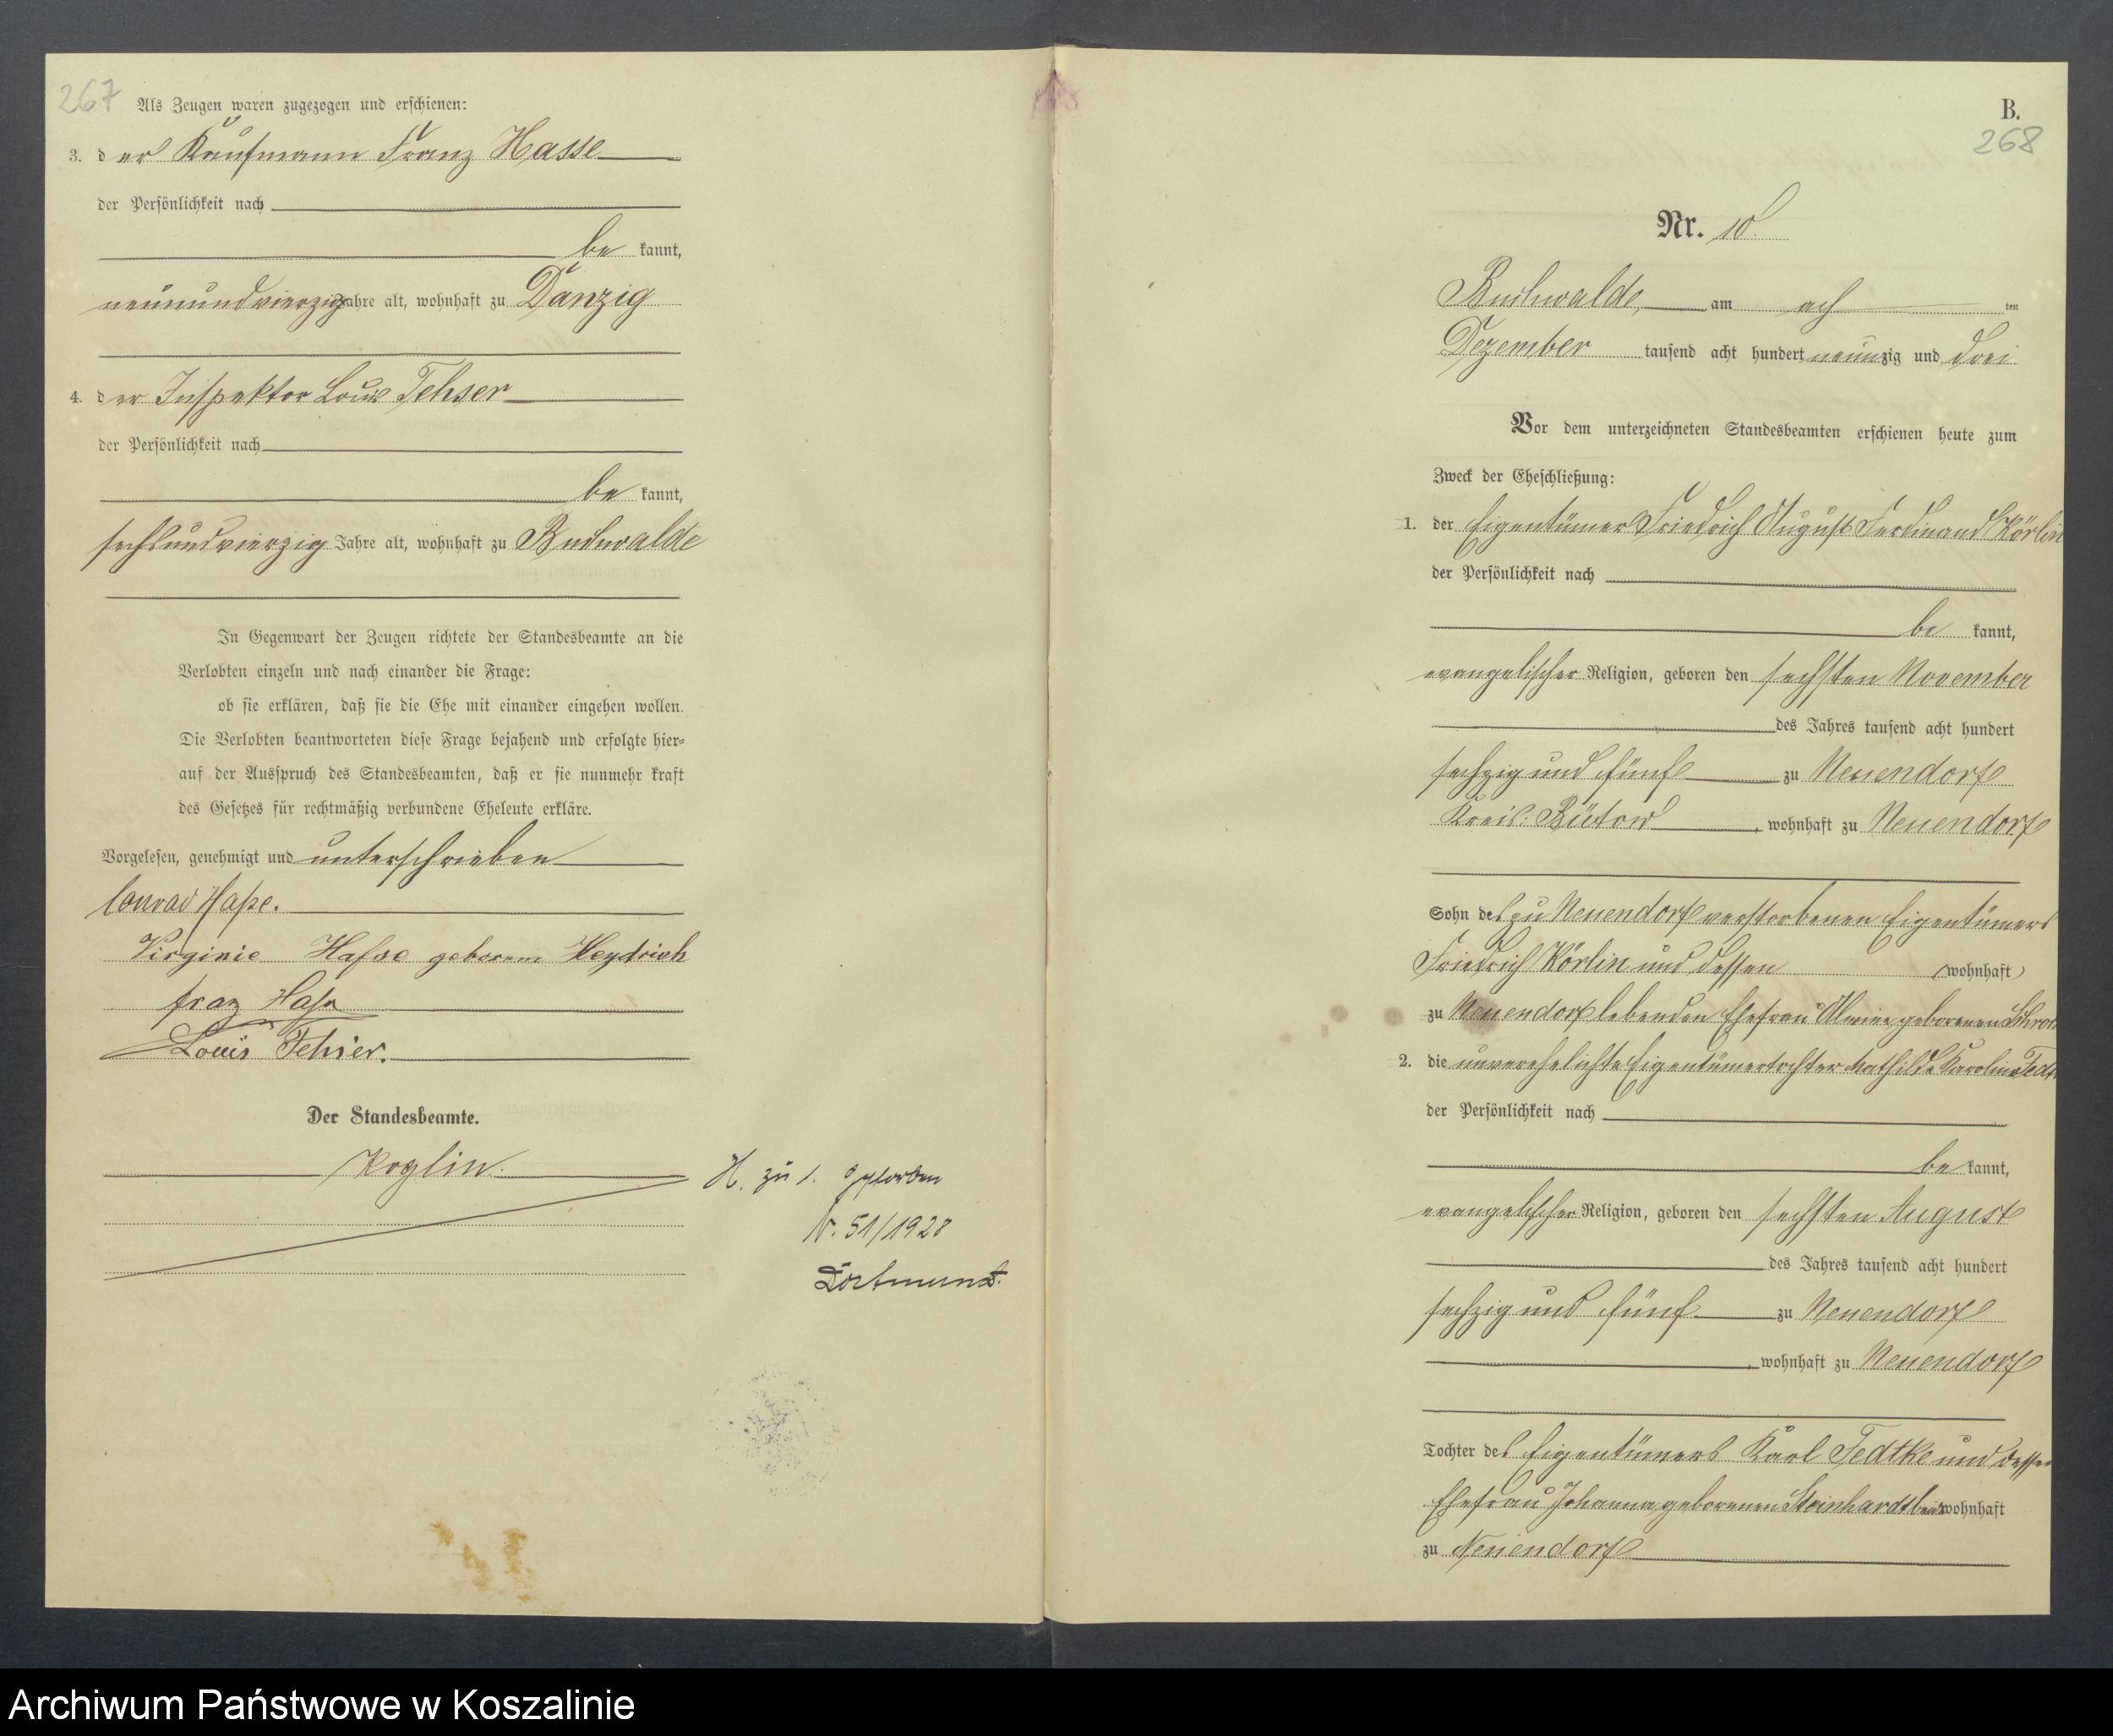 267
Als Zeugen waren zugezogen und erschienen:
3. der Kaufmann Franz Hasse
der Persönlichkeit nach
be kannt,
neunundvierzig Jahre alt, wohnhaft zu Danzig
4. der Inspektor Louis Tehser
der Persönlichkeit nach
be kannt,
sechsundvierzig Jahre alt, wohnhaft zu Buchwalde
In Gegenwart der Zeugen richtete der Standesbeamte an die
Verlobten einzeln und nach einander die Frage:
ob sie erklären, daß sie die Ehe mit einander eingehen wollen.
Die Verlobten beantworteten diese Frage bejahend und erfolgte hier-
auf der Ausspruch des Standesbeamten, daß er sie nunmehr kraft
des Gesetzes für rechtmäßig verbundene Eheleute erkläre.
Vorgelesen, genehmigt und unterschrieben
Conrad Hasse.
Virginie Hasse geborene Heydrich
Franz Hasse
Louis Tehser.
Der Standesbeamte.
Koglin.
H. zu 1. gestorben
Nr. 51/1928
Dortmund.
B.
268
Nr. 10.
Buchwalde, am ach ten
Dezember tausend acht hundert neunzig und drei
Vor dem unterzeichneten Standesbeamten erschienen heute zum
Zweck der Eheschließung:
1. der Eigentümer Friedrich August Ferdinand Körlin
der Persönlichkeit nach
be kannt,
evangelischer Religion, geboren den sechsten November
des Jahres tausend acht hundert
sechzig und fünf zu Neuendorf
Kreis Bütow, wohnhaft zu Neuendorf
Sohn des zu Neuendorf verstorbenen Eigentümers
Friedrich Körlin und dessen (wohnhaft)
zu Neuendorf lebenden Ehefrau geborenen
2. die unverehelichte Eigentümertochter Mathilde Karoline
der Persönlichkeit nach
be kannt,
evangelischer Religion, geboren den sechsten August
des Jahres tausend acht hundert
sechzig und fünf zu Neuendorf
, wohnhaft zu Neuendorf
Tochter des Eigentümers Karl Tedtke und dessen
Ehefrau Johanna geborenen Steinhardt beide wohnhaft
zu Neuendorf
Archiwum Państwowe w Koszalinie